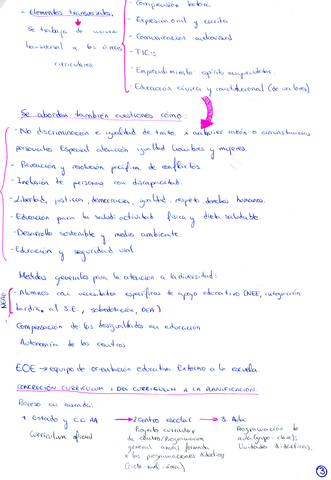 - Comprensión lectora.
- Elementos transversales.
- Expresión oral y escrita.
Se trabaja de manera
- Comunicación audiovisual
transversal a las áreas
- TIC's
curriculares
- Emprendimiento espíritu emprendedor.
- Educación cívica y constitucional (de valores)
Se abordan también cuestiones cómo:
- No discriminación e igualdad de trato, x cualquier razón o circunstancias
personales. Especial atención igualdad hombres y mujeres.
- Prevención y resolución pacífica de conflictos.
- Inclusión de personas con discapacidad.
- Libertad, justicia, democracia, igualdad, respeto derechos humanos.
- Educación para la salud: actividad física y dieta saludable.
- Desarrollo sostenible y medio ambiente.
- Educación y seguridad vial.
Medidas generales para la atención a la diversidad:
- Alumnos con necesidades específicas de apoyo educativo (NEE, integración
tardía al S.E., sobredotación, DEA)
Compensación de las desigualdades en educación
Autonomía de los centros.
EOE → equipo de orientación educativa. Externo a la escuela.
CONCRECIÓN CURRICULUM: DEL CURRICULUM A LA PLANIFICACIÓN.
Proceso en cascada:
1. Estado y CC.AA → 2. Centro escolar → 3. Aula
Curriculum oficial
Proyecto curricular
de centro/Programación
general anual formada
x las programaciones didácticas
(ciclo - - área)
Programación de
aula (grupo-clase);
Unidades didácticas.
3